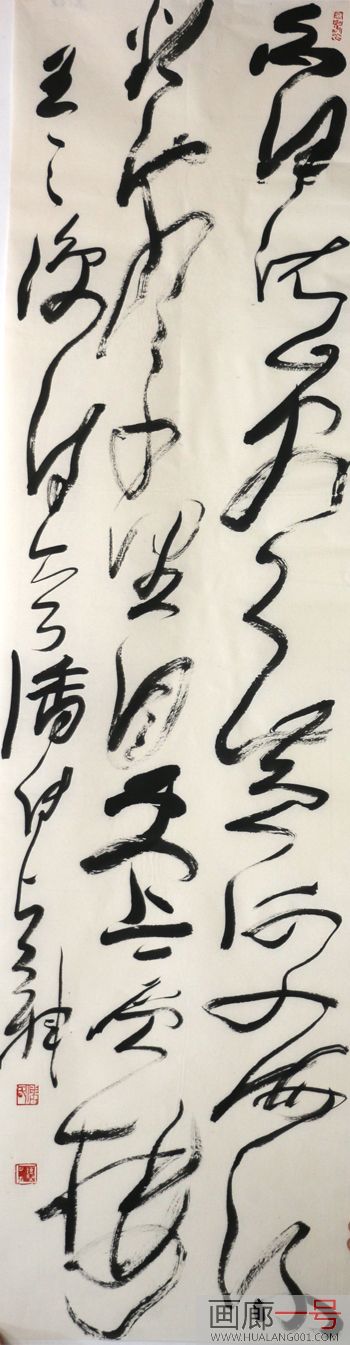 白日依山尽黄河入海流
欲穷千里目更上一层楼
王之涣诗
画廊一号
WWW.HUALANG001.COM